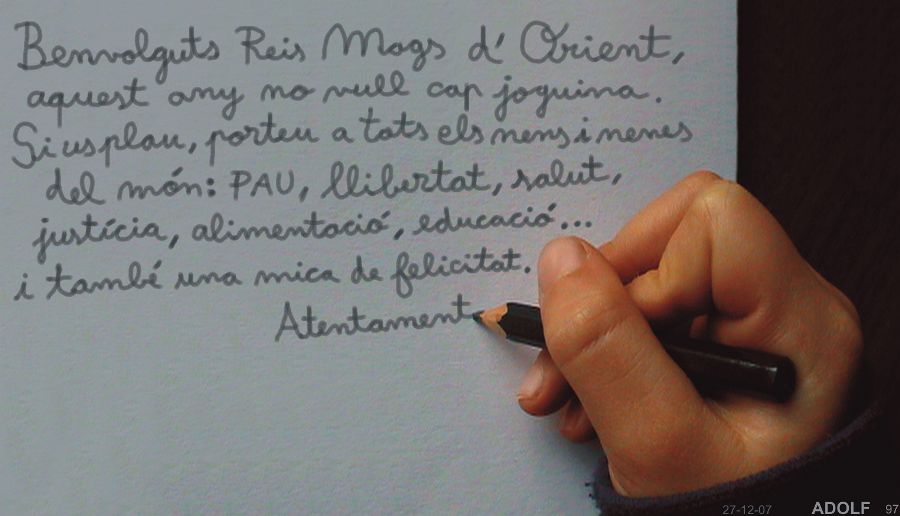 Benvolguts Reis Mags d'Orient,
aquest any no vull cap joguina.
Siusplau, porteu a tots els nens i nenes
del món: PAU, llibertat, salut,
justícia, alimentació, educació...
i també una mica de felicitat.
Atentament
27-12-07 ADOLF 97